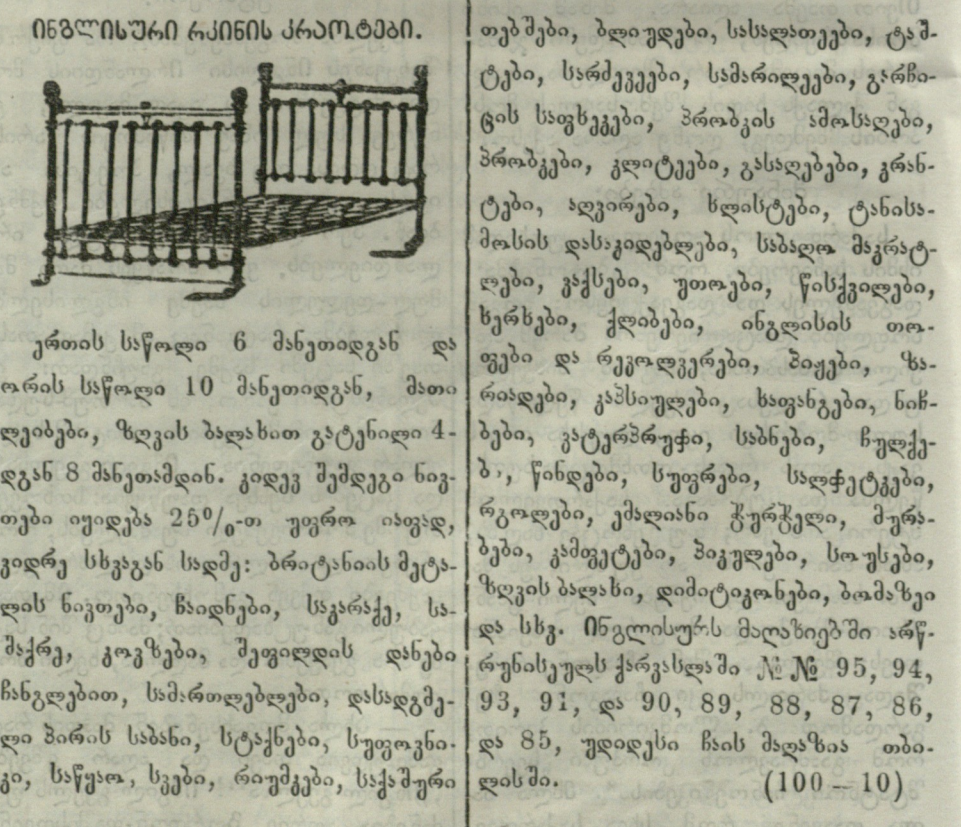 ინგლისური რკინის კრაოტები.
ერთის საწოლი 6 მანეთიდგან და
ორის საწოლი 10 მანეთიდგან, მათი
ლეიბები, ზღვის ბალახით გატენილი 4-
დგან 8 მანეთამდინ. კიდევ შემდეგი ნივ-
თები იყიდება 25%-თ უფრო იაფად,
ვიდრე სხვაგან სადმე: ბრიტანიის მეტა-
ლის ნივთები, ჩაიდნები, საკარაქე, სა-
შაქრე, კოვზები, შეფილდის დანები
ჩანგლებით, სამართლებლები, დასადგმე-
ლი პირის საბანი, სტაქნები, სუფოვნი-
კი, საწყაო, სვები, რიუმკები, საქაშური
თებშები, ბლიუდები, სასალათეები, ტაშ-
ტები, სარძევეები, სამარილეები, გარჩი-
ცის საფხეკები, პრობკის ამოსაღები,
პრობკები, კლიტეები, გასაღებები, კრან-
ტები, აღვირები, ხლისტები, ტანისა-
მოსის დასაკიდებლები, საბაღო მაკრატ-
ლები, ვაქსები, უთოები, წისქვილები,
ხერხები, ქლიბები, ინგლისის თო-
ფები და რევოლვერები, პიჟები, ზა-
რიადები, კაპსიულები, საფანგები, ნიჩ-
ბები, ვატერპრუფი, საბნები, ჩულქე-
ბი, წინდები, სუფრები, სალფეტკები,
რგოლები, ემალიანი ჭურჭელი, მურა-
ბები, კამფეტები, პიკულები, სოუსები,
ზღვის ბალახი, დიმიტიკონები, ბომაზეი
და სხვ. ინგლისურს მაღაზიებში არწ-
რუნისეულს ქარვასლაში №№ 95, 94,
93, 91, და 90, 89, 88, 87, 86,
და 85, უდიდესი ჩაის მაღაზია თბი-
ლისში. (100–10)